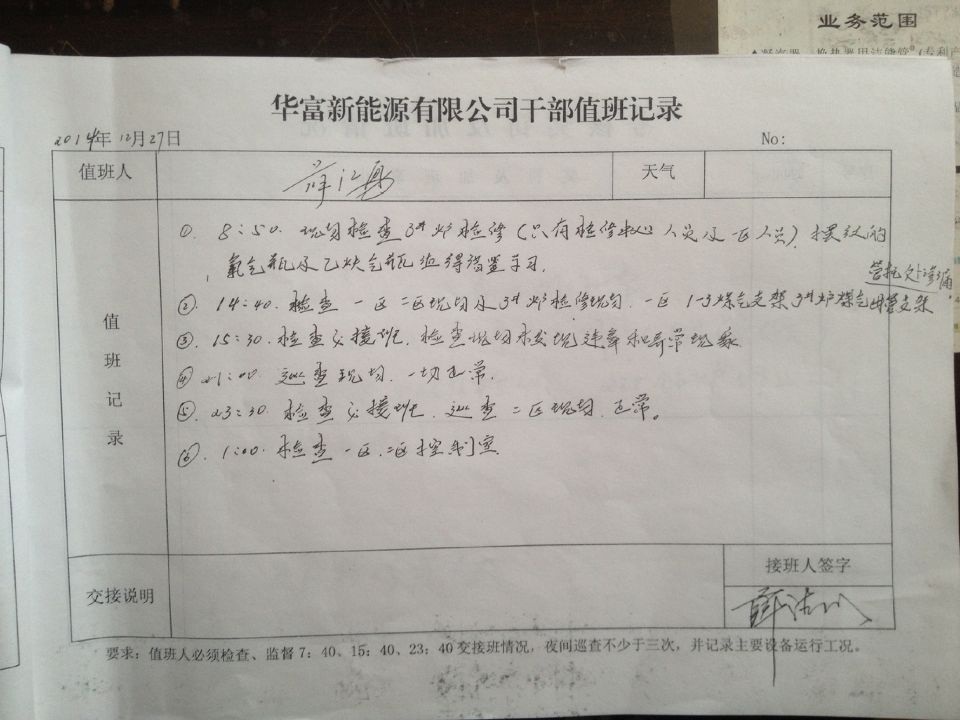 业务范围
华富新能源有限公司干部值班记录
2014年12月27日 No:
值班人 天气
值班记录
①. 8:50. 现场检查3#炉检修（只有检修中心人员及一区人员），摆放的
氧气瓶及乙炔气瓶
管托处下渗漏
②. 14:40. 检查一区二区现场及3#炉检修现场. 一区1-3煤气支架3#炉煤气 支架
③. 15:30. 检查交接班. 检查现场未发现违章和异常现象
④ 21:00. 巡查现场. 一切正常.
⑤. 23:30. 检查交接班. 巡查二区现场. 正常。
⑥. 1:00. 检查一区.二区控制室
交接说明 接班人签字
要求：值班人必须检查、监督7：40、15：40、23：40交接班情况，夜间巡查不少于三次，并记录主要设备运行工况。